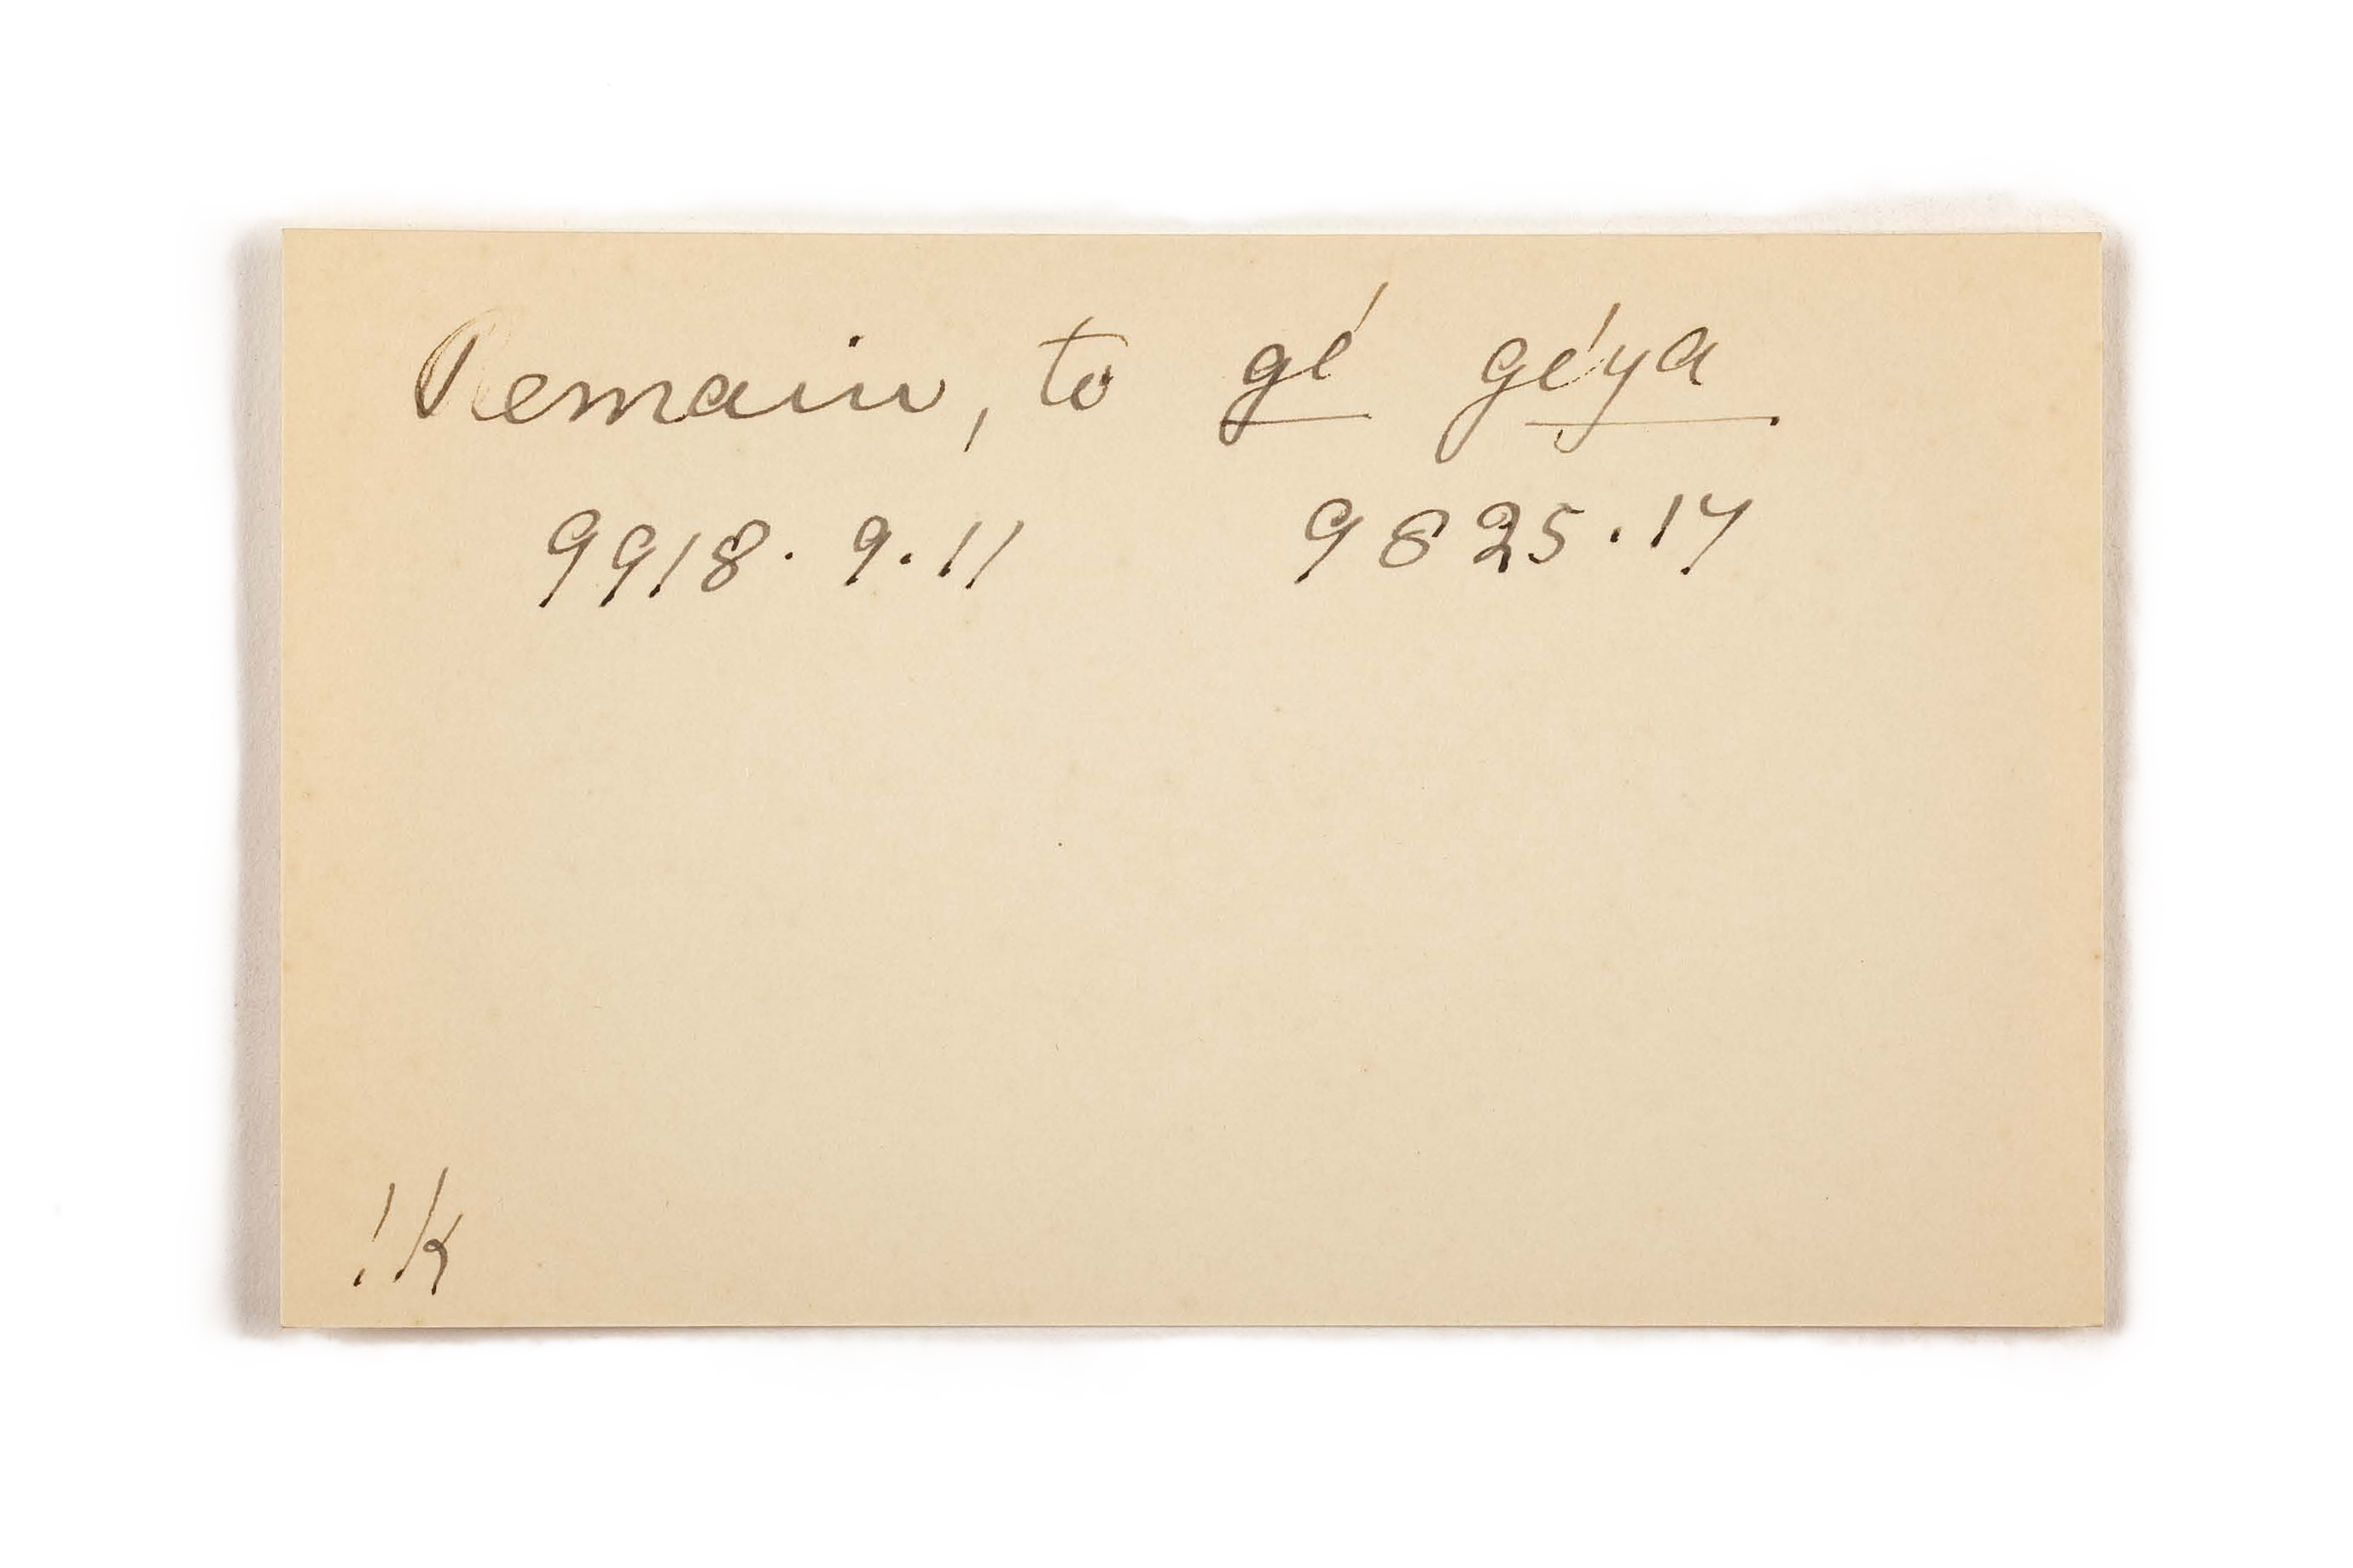 Remain, to gé géya
9918. 9.11 9825.17
!k